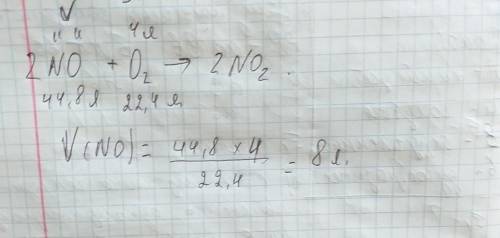 V
" " 4л
2NO + O₂ → 2NO₂.
44,8л 22,4л
V(NO) = 44,8 × 4 / 22,4 = 8л.